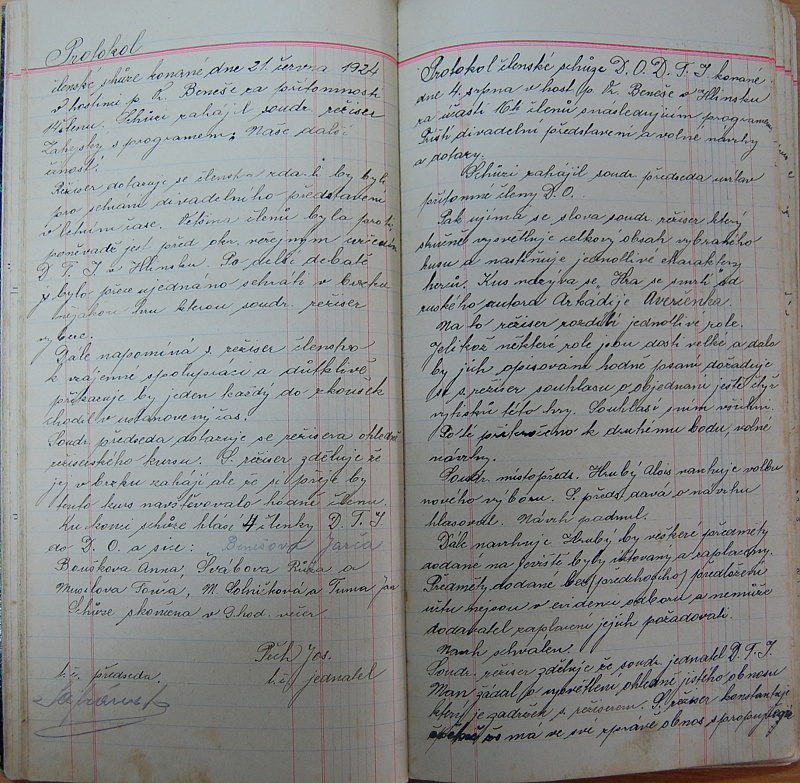 Protokol
členské schůze konané dne 21. června 1924
v hostinci p. K. Beneše za přítomnosti
členů. Schůzi zahájil soudr. režiser
s programem: Naše další
činnost.
Režiser dotazuje se členstva zda-li by bylo
pro sehrání divadelního představení
v letním čase. Většina členů byla proti
poněvadž jest před okr. veřejným cvičením
D. T. J. v Hlinsku. Po delší debatě
bylo přece ujednáno sehráti v
nějakou hru kterou soudr. režiser
vybere.
Dále napomíná s. režiser členstvo
k vzájemné spolupraci a důtklivě
přikazuje by jeden každý do zkoušek
chodil v ustanovený čas.
Soudr. předseda dotazuje se režisera ohledně
režiserského kursu. S. režiser zděluje že
jej v zahájí ale že si přeje by
tento kurs navštěvovalo hodně členů.
Ku konci schůze hlásí 4 členky D. T. J.
do D. O. a sice: Benešova
Bouškova Anna, Švábova a
M. a Tuma Jan
Schůze skončena v 9 hod. večer.
Pech Jos.
t.č. předseda. t.č. jednatel
Protokol členské schůze D. O. D. T. J. konané
dne 4. srpna v host. p. K. Beneše v Hlinsku
za účasti 16ti členů s následujícím programem
Příští divadelní představení a volné návrhy
a dotazy.
Schůzi zahájil soudr. předseda uvítav
přítomné členy D. O.
Pak ujímá se slova soudr. režiser který
stručně vysvětluje celkový obsah vybraného
kusu a nastiňuje jednotlivé charaktery
herců. Kus nazývá se „Hra se smrtí" od
ruského autora Arkádije Averčenka.
Na to režiser rozdělil jednotlivé role.
Jelikož některé role jsou dosti velké a dalo
by jich opisování hodně psaní dožaduje
se s. režiser souhlasu o objednání ještě čtyř
výtisků této hry. Souhlasí s ním všichni.
Poté přikročeno k druhému bodu, volné
návrhy.
Soudr. místopředs. Hrubý Alois navrhuje volbu
nového výboru. S. předs. dává o návrhu
hlasovat. Návrh padnul.
Dále navrhuje Hrubý by veškeré předměty
dodané na jeviště byly účtovany a zaplaceny.
Předměty dodané bez (předchozího) předložení
účtu nejsou v evidenci odboru a nemůže
dodavatel zaplacení jejich požadovati.
Návrh schválen.
Soudr. režiser zděluje že soudr. jednatel D. T. J.
Man žádal o vysvětlení ohledně jistého obnosu
který je zadržen s. režiserem. S. režiser konstatuje
má ve své zprávě obnos